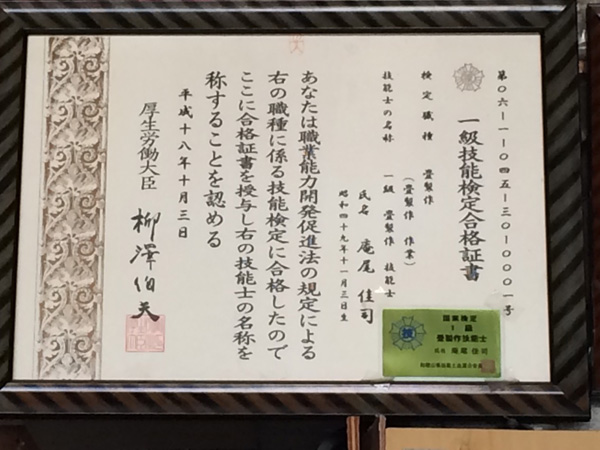 第〇六-一-〇四五-三〇-〇〇〇一号
一級技能検定合格証書
検定職種 畳製作
(畳製作 作業)
技能士の名称 一級 畳製作 技能士
氏名 庵尾 佳司
昭和四十九年十一月三日生
あなたは職業能力開発促進法の規定による
右の職種に係る技能検定に合格したので
ここに合格証書を授与し右の技能士の名称を
称することを認める
平成十八年十月三日
厚生労働大臣 柳澤伯夫
技
国家検定
1級
畳製作技能士
氏名 庵尾佳司